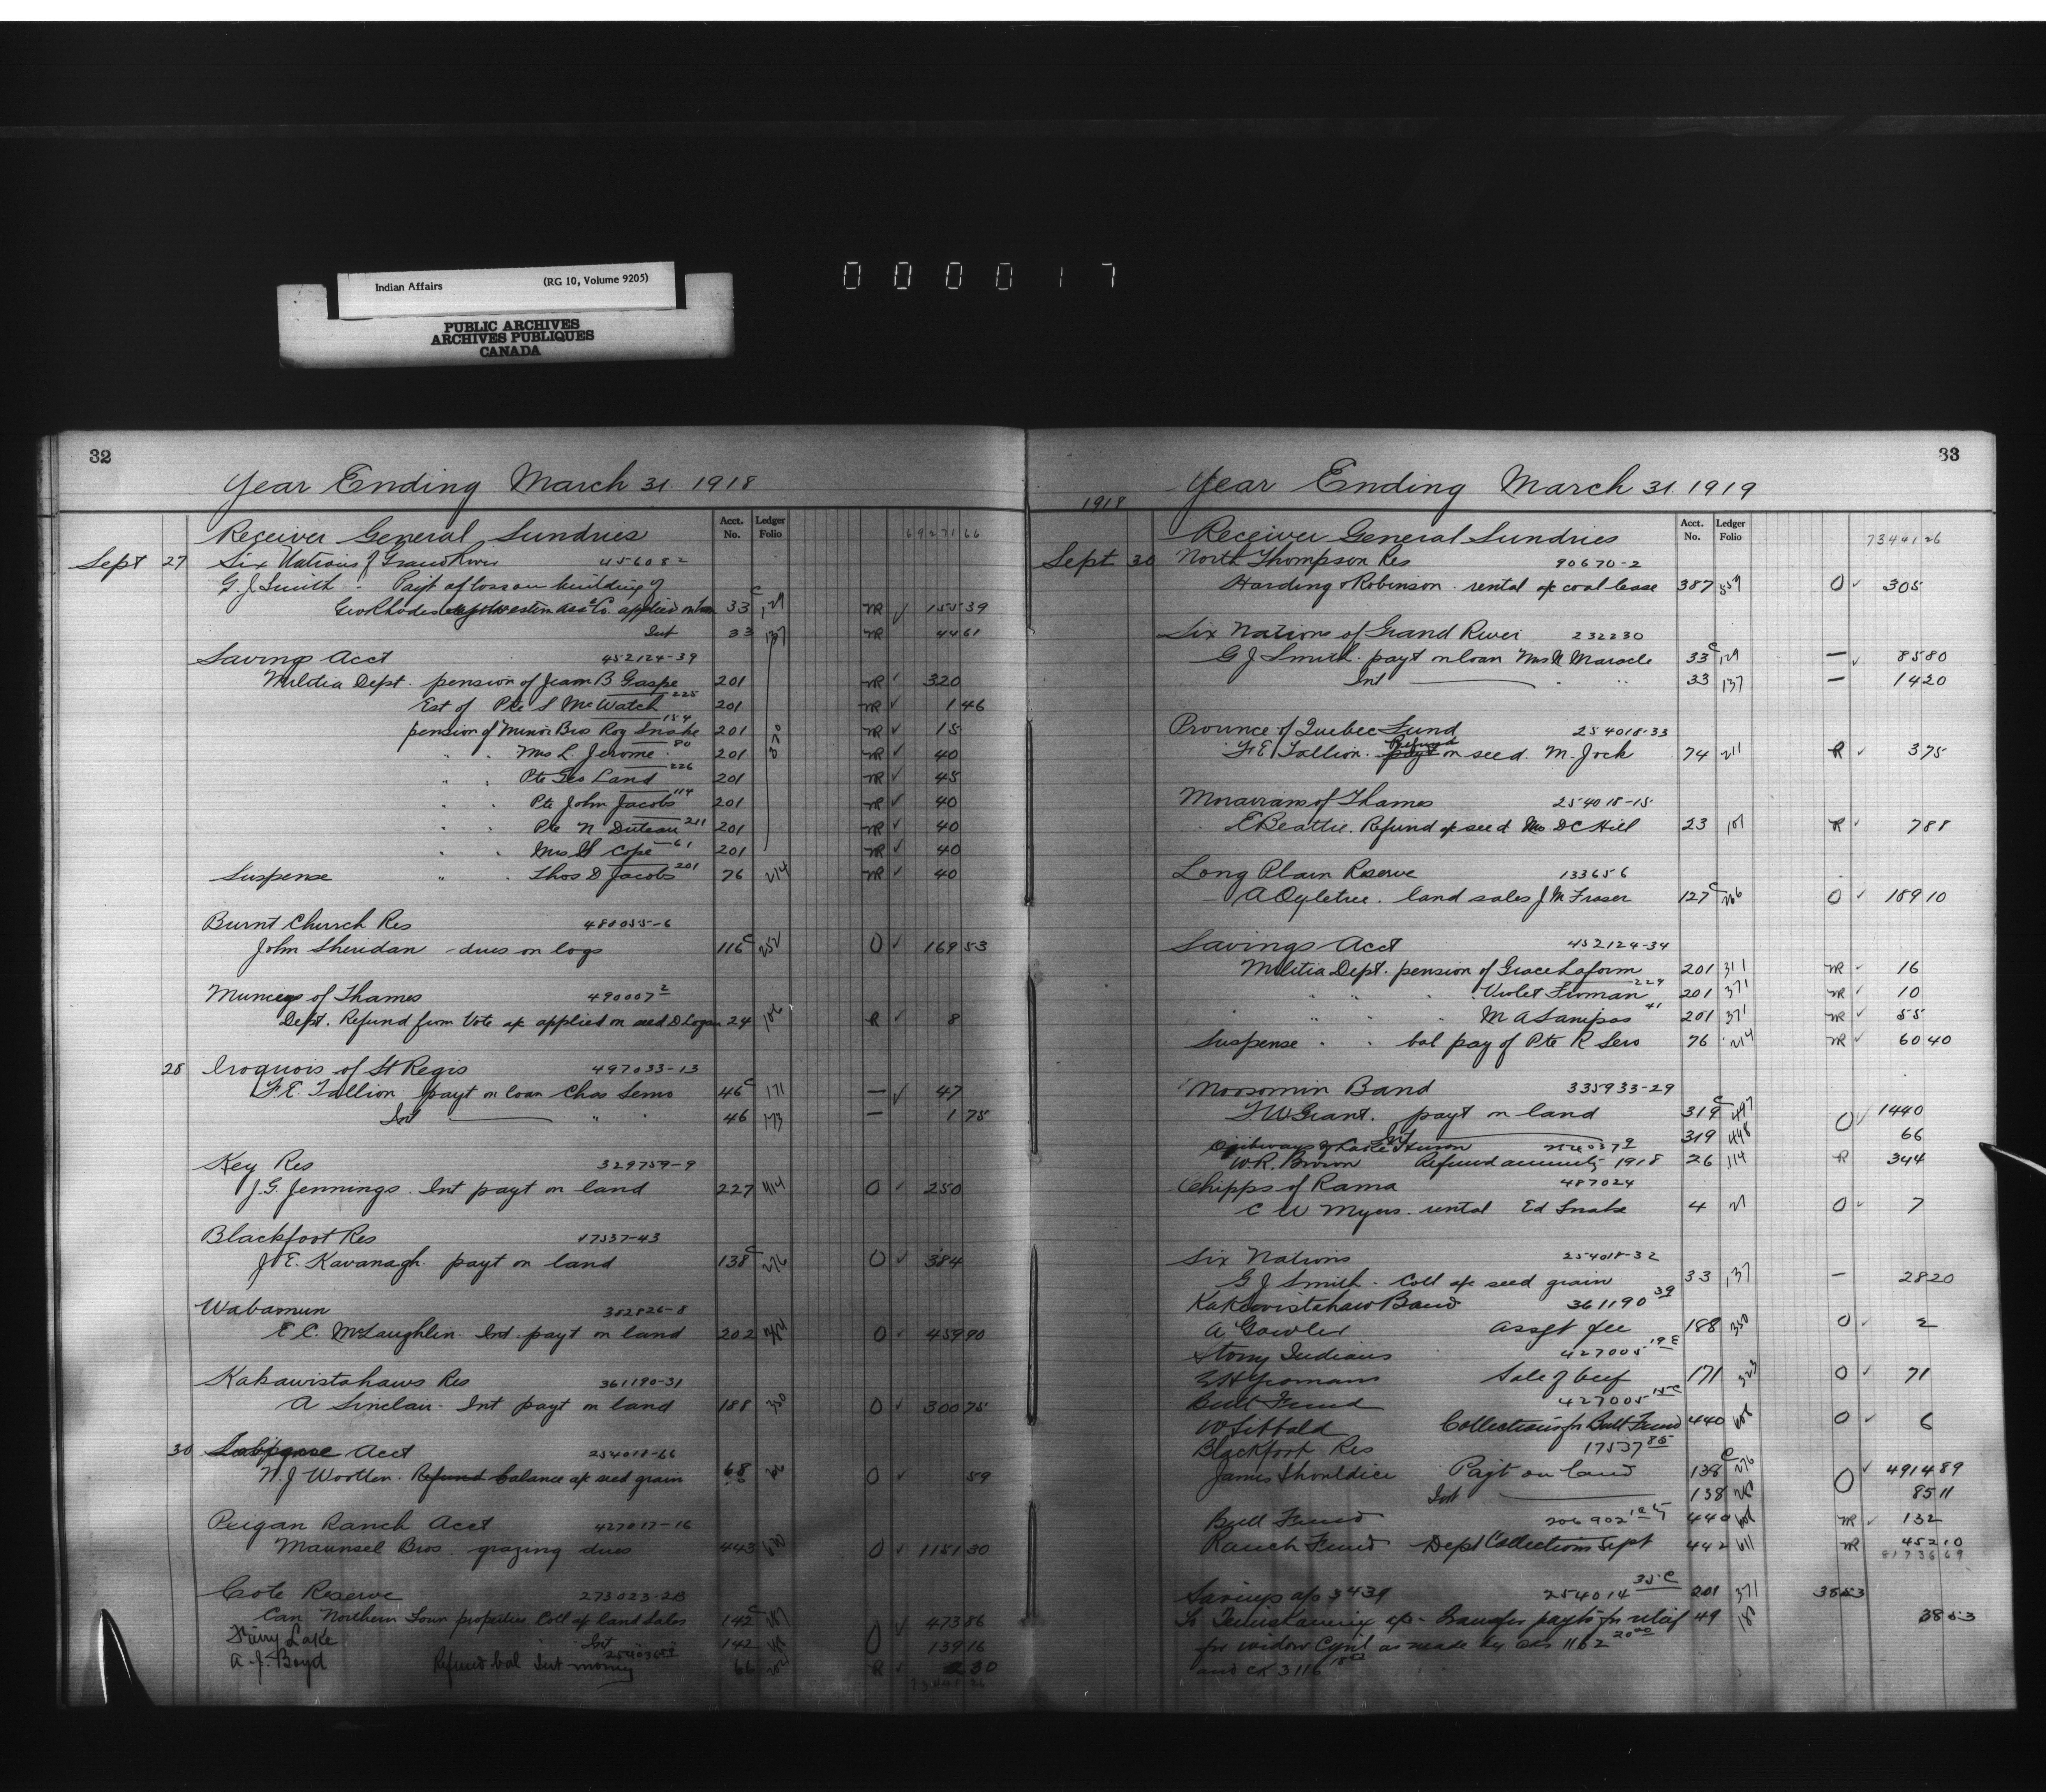 Indian Affairs (RG 10, Volume 9205)
PUBLIC ARCHIVES
ARCHIVES PUBLIQUES
CANADA
000017
32
Year Ending March 31. 1918
Acct. No. Ledger Folio
Receiver General Sundries 69271 66
Sept 27 Six Nations of Grand River 456082
G. J. Smith - Payt of loss on building of
Geo Rhodes applied on loan 33 c 129 NR ✓ 155 39
Int 33 137 NR 44 61
Saving Acct 452124-39
Militia Dept. pension of Jeam B Gaspe 201 NR ✓ 320
Est of Pte S McWatch 225 201 NR ✓ 1 46
pension of Minor Bros Roy Snake 154 201 NR ✓ 15
" " Mrs L. Jerome 80 201 NR ✓ 40
" " Pte Geo Land 226 201 NR ✓ 45
" " Pte John Jacobs 114 201 NR ✓ 40
" " Pte N Duteau 211 201 NR ✓ 40
" " Mrs Cope 61 201 NR ✓ 40
Suspense " " Thos D Jacobs 201 76 214 NR ✓ 40
Burnt Church Res 480055-6
John Sheridan - dues on logs 116 c 252 O ✓ 169 53
Munceys of Thames 490007 2
Dept. Refund from Vote a/c applied on seed D Logan 24 106 R ✓ 8
28 Iroquois of St Regis 497033-13
F. E. Tallion payt on loan Chas Semo 46 c 171 — ✓ 47
Int " " 46 173 — 1 75
Key Res 329759-9
J. G. Jennings. Int payt on land 227 414 O ✓ 250
Blackfoot Res 17537-43
J. E. Kavanagh. payt on land 138 c 276 O ✓ 384
Wabamun 382826-8
E C. McLaughlin. Int. payt on land 202 O ✓ 459 90
Kakawistahaws Res 361190-31
A Sinclair - Int payt on land 188 350 O ✓ 300 75
30 Acct 254018-66
N. J. Wootten. Refund balance a/c seed grain 68 O ✓ 59
Peigan Ranch Acct 427017-16
Maunsel Bros. grazing dues 443 O ✓ 1151 30
Cote Reserve 273023-2B
Can Northern Town properties Coll a/c land Sales 142 c O ✓ 473 86
Int 142 139 16
Fairy Lake
A. J. Boyd Refund bal Int money 66 R ✓ 2 30
73441 26
33
Year Ending March 31. 1919
1918
Acct. No. Ledger Folio
Receiver General Sundries 73441 26
Sept 30 North Thompson Res 90670-2
Harding & Robinson. rental a/c coal lease 387 559 O ✓ 305
Six Nations of Grand River 232230
G J Smith. payt on loan Mrs N Maracle 33 c 129 — ✓ 85 80
Int " " 33 137 — 14 20
Province of Quebec Fund 254018-33
F. E. Tallion. payt Refund on seed. M. Jock 74 211 R ✓ 3 75
Moravians of Thames 254018-15
E Beattie. Refund a/c seed Mrs D C Hill 23 101 R ✓ 7 88
Long Plain Reserve 133656
A Ogletree. land sales J M Fraser 127 c 266 O ✓ 189 10
Savings Acct 452124-34
Militia Dept. pension of Grace Laform 201 371 NR ✓ 16
" " " Violet Froman 229 201 371 NR ✓ 10
" " " M A Sampas 41 201 371 NR ✓ 55
Suspense " " bal pay of Pte R Sero 76 214 NR ✓ 60 40
Moosomin Band 335933-29
F. W. Grant. payt on land 319 c 447 O ✓ 1440
Int 319 448 66
Ojibways of Lake Huron 254037 9
W. R. Brown Refund annuity 1918 26 114 R 3 44
Chipps of Rama 487024
C W Myers. rental Ed Snake 4 21 O ✓ 7
Six Nations 254018-32
G J Smith - Coll a/c seed grain 33 137 — 28 20
Kakewistahaw Band 361190 39
A. Gowler assgt fee 188 350 O ✓ 2
Stony Indians 427005 19E
E H Yeomans Sale of beef 171 323 O ✓ 71
Bull Fund 427005 15C
W Sibbald Collections for Bull Fund 440 608 O ✓ 6
Blackfoot Res 17537 85
James Shouldice Payt on land 138 c 276 O ✓ 4914 89
Int 138 85 11
Bull Fund 206902 440 608 NR ✓ 132
Ranch Fund Dept Collections Sept 442 611 NR 452 10
81736 69
Savings a/c 3439 254014 35C 201 371 38 53
To Temiskaming a/c - transfer payts for relief 49 38 53
for widow Cyril as made by cks 1162 20.00
and ck 3116